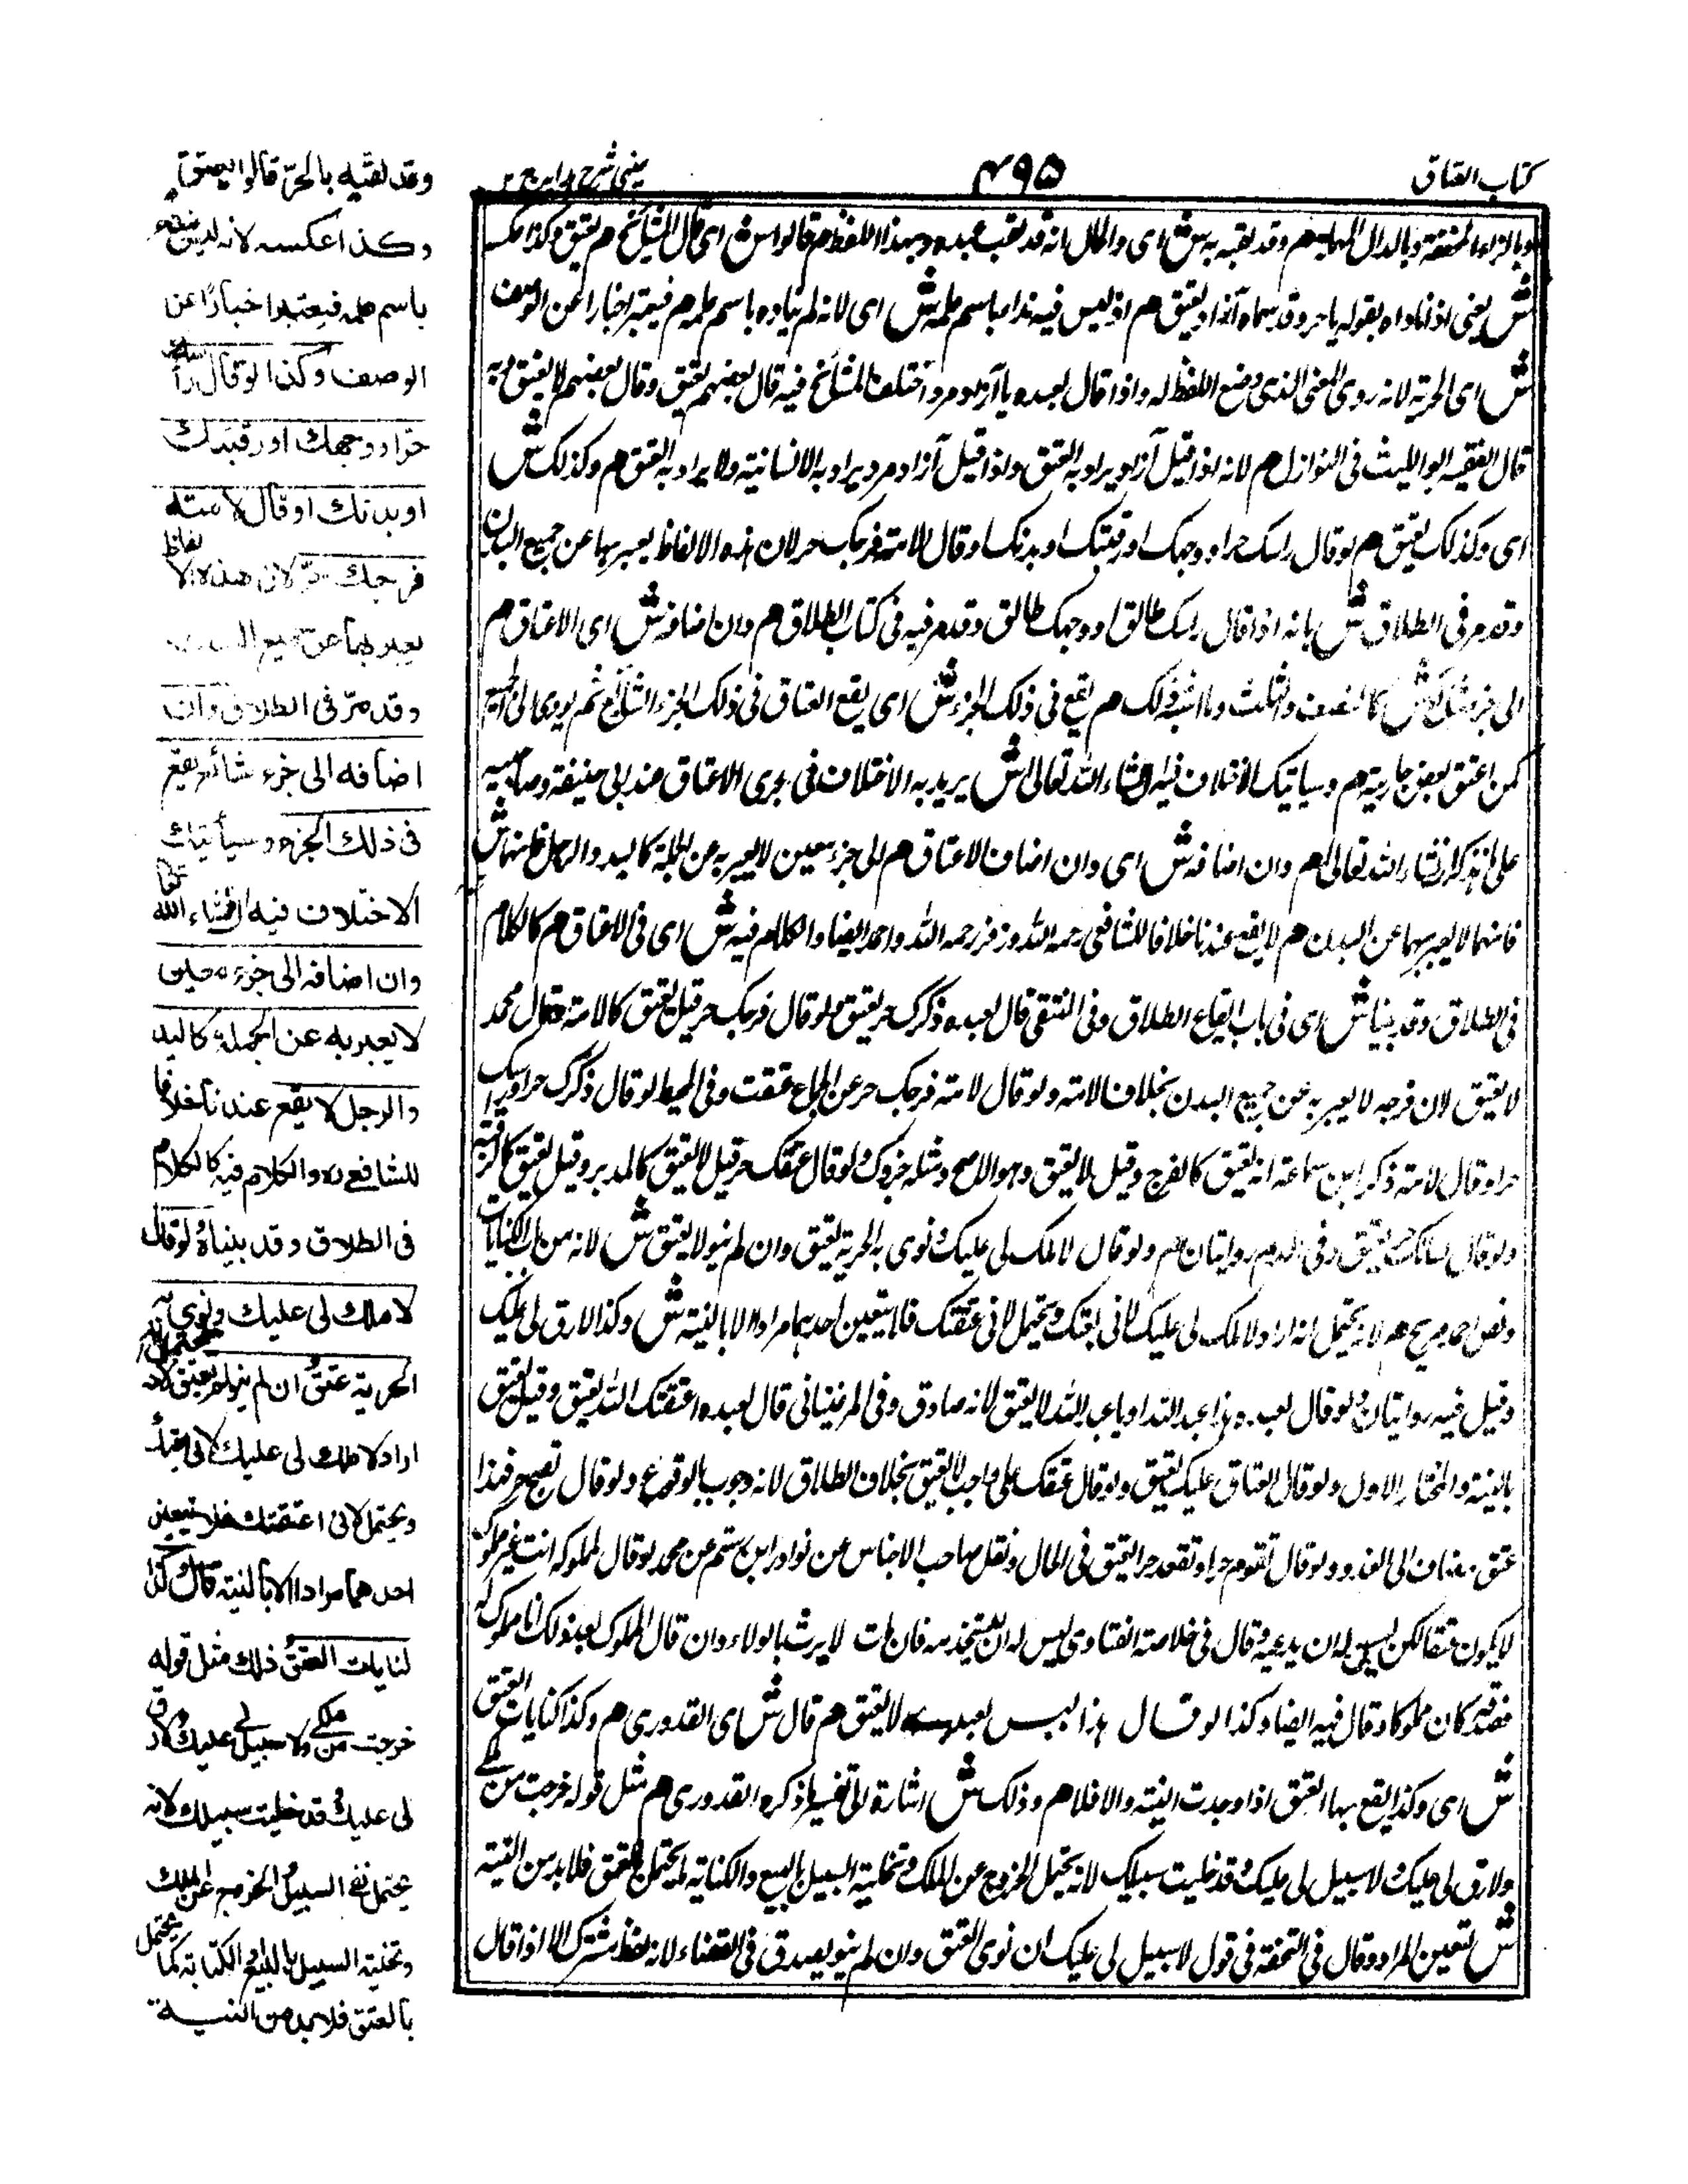 كتاب العتاق
٤٩٥
عيني شرح هدايه ج ٢
وبالزاء المخففة وبالدال المهملة م وقد لقبه به ش اى والحال انه قد لقب عبده وبهذا اللفظ م قالوا ش اى قال المشائخ م يعتق وكذا عكسه
ش يعنى اذا ناداه بقوله يا حر وقد سماه آزاد يعتق م اذ ليس فيه ندا باسم علمه ش اى لانه لم يناده باسم علمه م فيعتبر اخبارا عن الوصف
ش اى الحرية لانه روى المعنى الذى وضع اللفظ له واذا قال لعبده يا آزاد مرد اختلف المشائخ فيه قال بعضهم يعتق وقال بعضهم لا يعتق وبه
قال الفقيه ابو الليث فى النوازل م لانه اذا قيل آزاد يراد به العتق واذا قيل آزاد مرد يراد به الانسانية ولا يراد به العتق م وكذلك ش
اى وكذلك يعتق م لو قال راسك حر او وجهك او رقبتك او بدنك او قال لامته فرجك حر لان هذه الالفاظ يعبر بها عن جميع البدن
وقد مر فى الطلاق ش بانه اذا قال راسك طالق او وجهك طالق وقد مر فيه فى كتاب الطلاق م وان اضافه ش اى الاعتاق م
الى جزء شائع ش كالنصف والثلث وما اشبه ذلك م يقع فى ذلك الجزء ش اى يقع العتاق فى ذلك الجزء الشائع ثم يودى الى الجميع
كمن اعتق بعض جاريته م وسياتيك الاختلاف فيه ان شاء الله تعالى ش يريد به الاختلاف فى تجزى الاعتاق عند ابى حنيفة وصاحبيه
على ما نذكر ان شاء الله تعالى م وان اضافه ش اى وان اضاف الاعتاق م الى جزء معين لا يعبر به عن الجملة كاليد والرجل ش
فانهما لا يعبر بهما عن البدن م لا يقع عندنا خلافا للشافعى رحمه الله وزفر رحمه الله واحمد ايضا والكلام فيه ش اى فى الاعتاق م كالكلام
فى الطلاق وقد بيناه ش اى فى باب ايقاع الطلاق وفى المنتقى قال لعبده ذكرك حر يعتق ولو قال فرجك حر قيل يعتق كالامة وقال محمد
لا يعتق لان فرجه لا يعبر به عن جميع البدن بخلاف الامة ولو قال لامته فرجك حر عن الجماع عتقت وفى المحيط لو قال ذكرك حر او استك
حر او قال لامته ذكر ابن سماعة انه يعتق كالفرج وقيل لا يعتق وهو الاصح ومثله جزوك ولو قال عتقك حر قيل لا يعتق كالدبر وقيل يعتق كالرقبة
ولو قال لسانك حر يعتق وفى الدم روايتان م ولو قال لا ملك لى عليك ونوى به الحرية يعتق وان لم ينو لا يعتق ش لانه من الكنايات
ونص احمد صريح م لانه يحتمل انه اراد لا ملك لى عليك لانى بعتك ويحتمل لانى عتقتك فلا يتعين احدهما مرادا الا بالنية ش وكذا لا رق لى عليك
وقيل فيه روايتان ولو قال لعبده هذا عبد الله او يا عبد الله لا يعتق لانه صادق وفى المرغينانى قال لعبده اعتقتك الله يعتق وقيل يعتق
بالنية والمختار الاول ولو قال العتاق عليك يعتق ولو قال عتقك على واجب لا يعتق بخلاف الطلاق لانه وجوب بالوقوع ولو قال تصبح حر فهذا
عتق مضاف الى الغد ولو قال تقوم حرا وتقعد حرا يعتق فى الحال ونقل صاحب الاجناس عن نوادر ابن رستم عن محمد لو قال لمملوكه انت غير مملوك
لا يكون عتقا لكن ليس له ان يدعيه وقال فى خلاصة الفتاوى ليس له ان يستخدمه فان مات لا يرث بالولاء وان قال المملوك بعد ذلك انا مملوك له
فصدقه كان مملوكا وقال فيه ايضا وكذا لو قال هذا ليس بعبدى لا يعتق م قال ش اى القدورى م وكذا كنايات العتق
ش اى وكذا يقع بها العتق اذا وجدت النية والا فلا م وذلك ش اشارة الى تفسير ما ذكره القدورى م مثل قوله خرجت من ملكى
ولا رق لى عليك ولا سبيل لى عليك وقد خليت سبيلك لانه يحتمل الخروج عن الملك وتخلية السبيل بالبيع والكتابة كما يحتمل بالعتق فلا بد من النية
ش لتعيين المراد وقال فى التحفة فى قول لا سبيل لى عليك ان نوى العتق وان لم ينو يصدق فى القضاء لانه لفظ مشترك الا اذا قال
وقد لقبه بالحر قالوا يعتق
وكذا عكسه لانه ليس بنداء
باسم علمه فيعتبر اخبارا عن
الوصف وكذا لو قال رأسك
حر او وجهك او رقبتك
او بدنك او قال لامته
فرجك حر لان هذه الالفاظ
يعبر بها عن جميع البدن
وقد مر فى الطلاق وان
اضافه الى جزء شائع يقع
فى ذلك الجزء وسيأتيك
الاختلاف فيه ان شاء الله تعالى
وان اضافه الى جزء معين
لا يعبر به عن الجملة كاليد
والرجل لا يقع عندنا خلافا
للشافعي ره والكلام فيه كالكلام
فى الطلاق وقد بيناه لو قال
لا ملك لى عليك ونوى به
الحرية عتق وان لم ينو لم يعتق لانه يحتمل انه
اراد لا ملك لى عليك لانى بعتك
ويحتمل لانى اعتقتك فلا يتعين
احدهما مرادا الا بالنية قال وكذا
كنايات العتق وذلك مثل قوله
خرجت من ملكى ولا سبيل لى عليك ولا رق
لى عليك وقد خليت سبيلك لانه
يحتمل نفى السبيل والخروج عن الملك
وتخلية السبيل بالبيع او الكتابة كما يحتمل
بالعتق فلا بد من النية